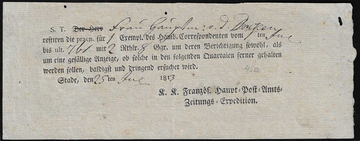 S. T. Frau
restiren die praen. für 1 Exempl. des Hamb. Correspondenten vom 1
bis ult. mit 2 Rthlr. 8 Ggr. um deren Berichtigung sowohl, als
um eine gefällige Anzeige, ob solche in den folgenden Quartalen ferner gehalten
werden sollen, baldigst und dringend ersuchet wird.
Stade, den 25 1813
K. K. Französ. Haupt-Post-Amts-
Zeitungs-Expedition.